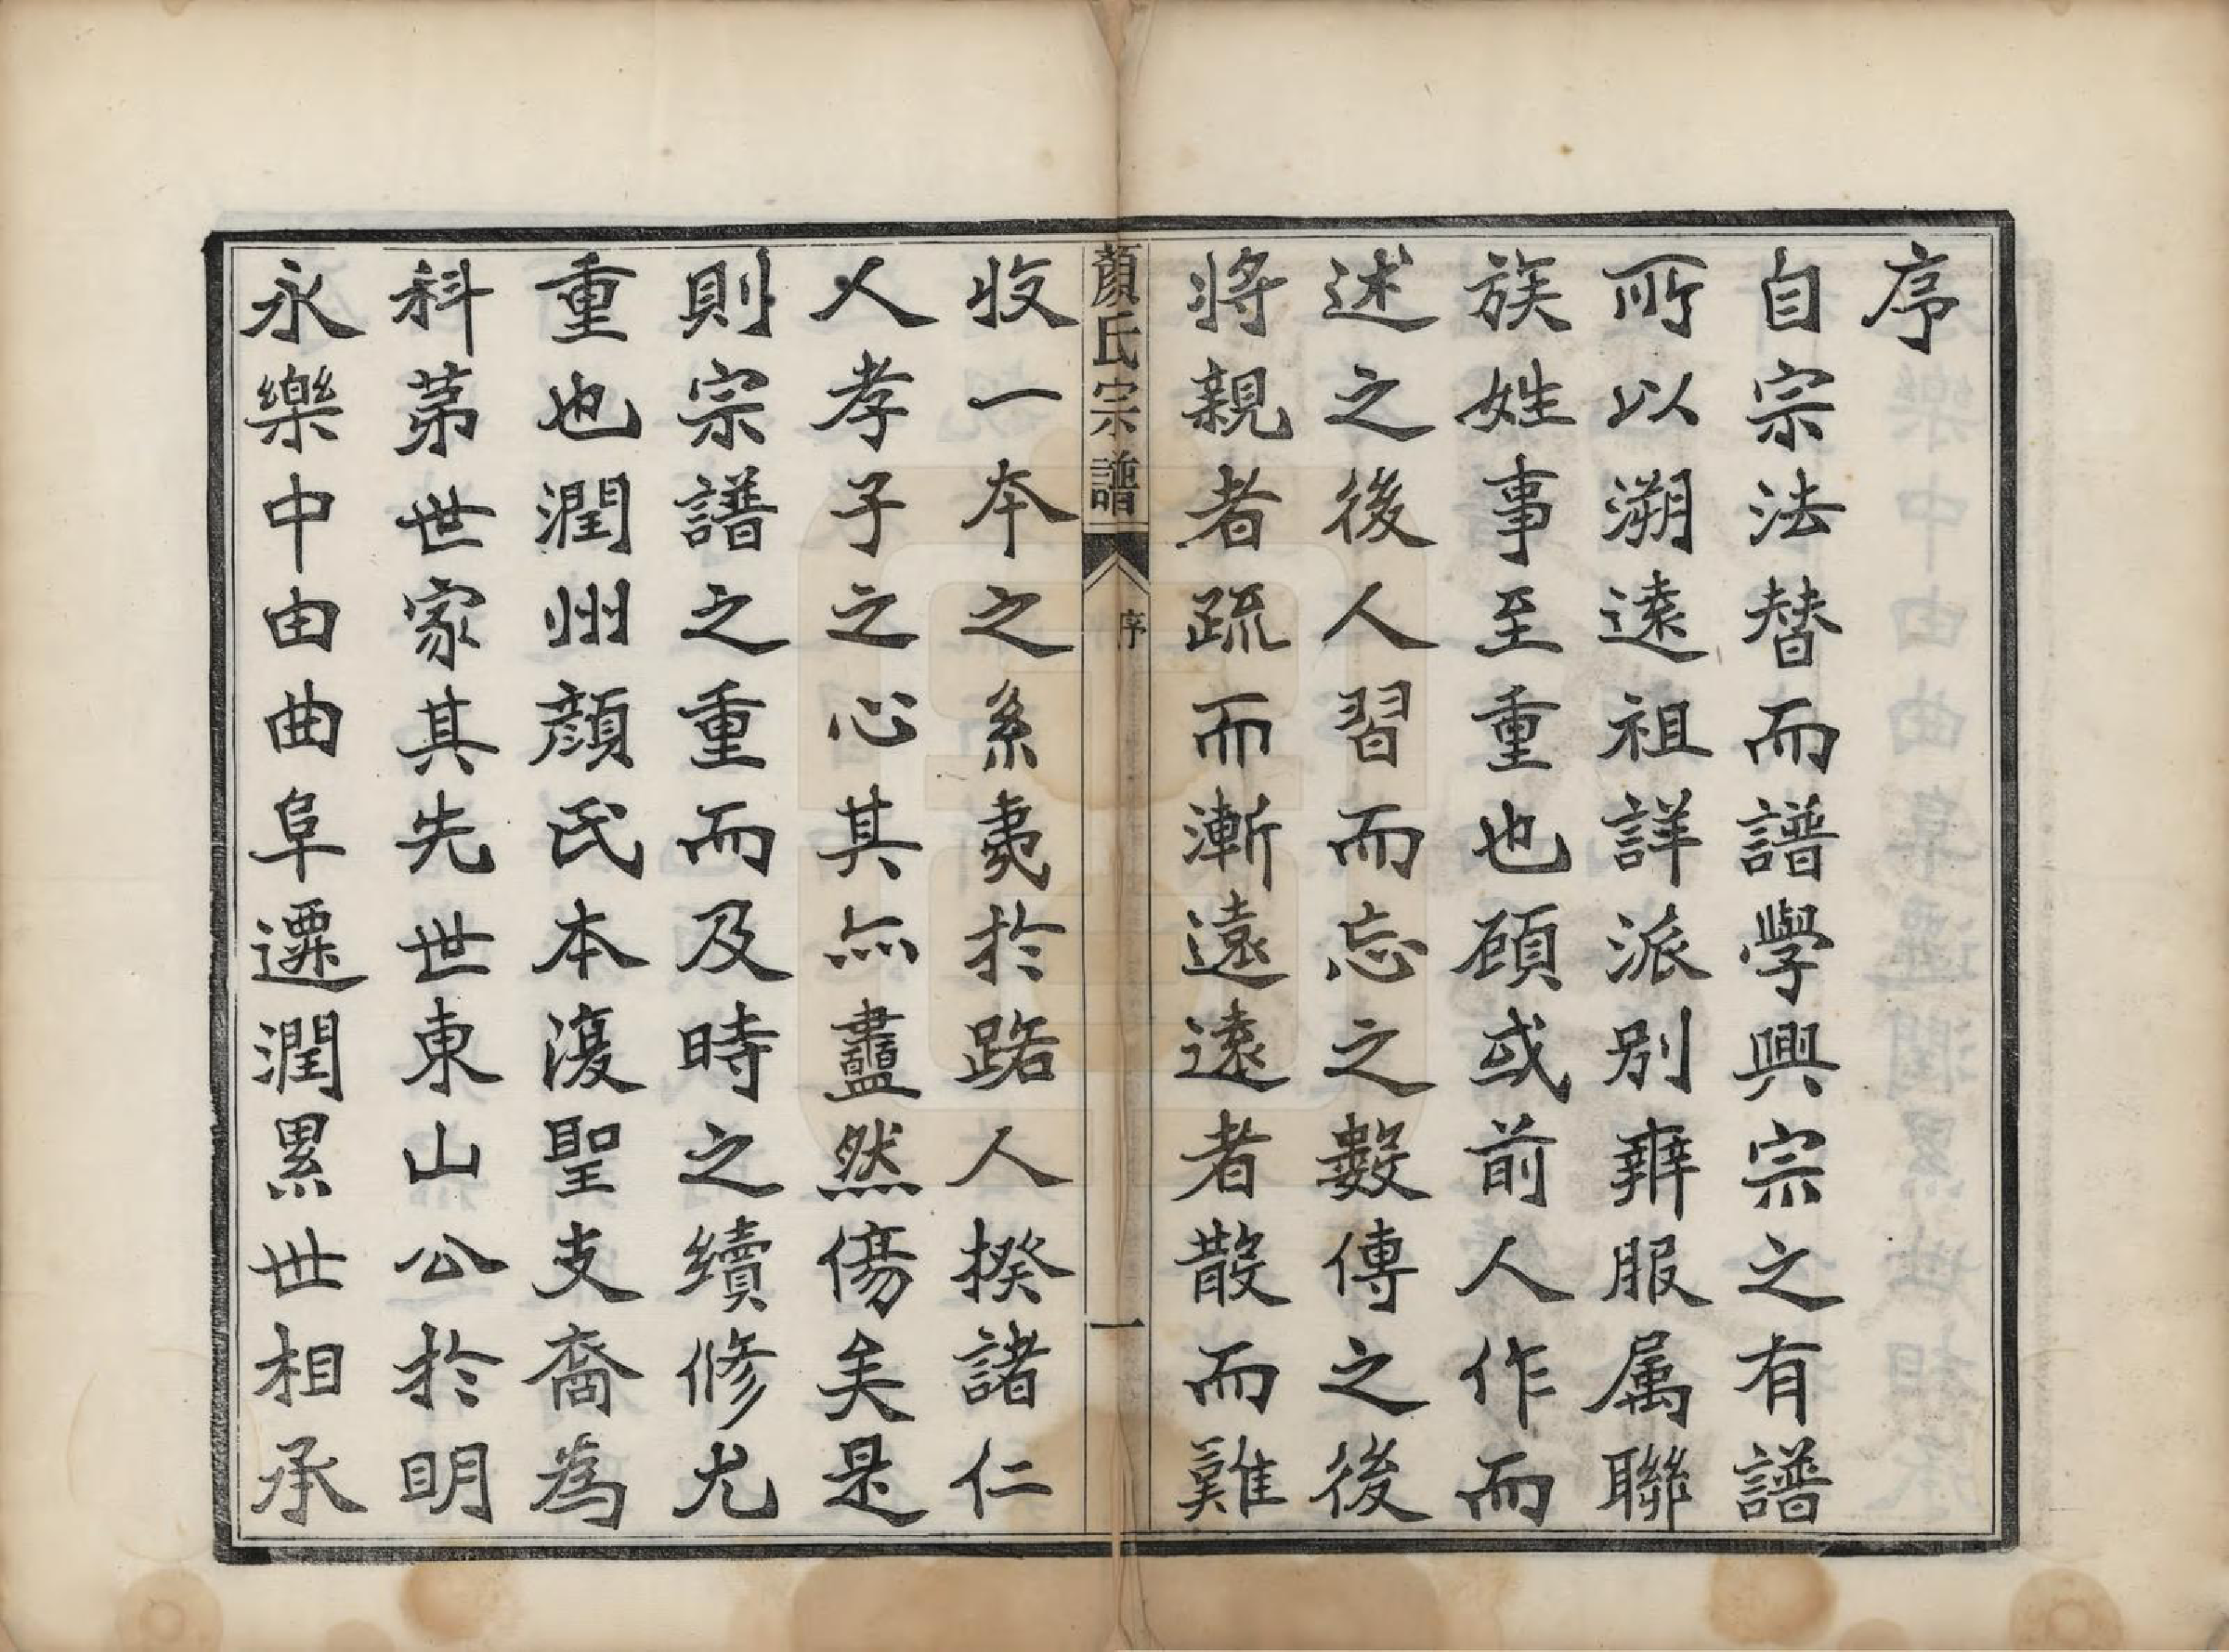 序
自宗法替而譜學興宗之有譜
所以溯遠祖詳派别辨服属聯
族姓事至重也顧或前人作而
述之後人習而忘之數傳之後
将親者疏而漸遠遠者散而難
顏氏宗譜 序 一
收一本之系夷於路人揆諸仁
人孝子之心其亦衋然傷矣是
則宗譜之重而及時之續修尤
重也潤州顏氏本復聖支裔為
科苐世家其先世東山公於明
永樂中由曲阜遷潤累世相承